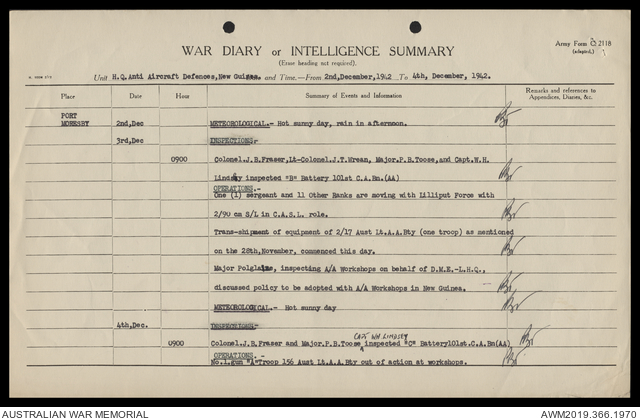 Army Form C 2118
(adapted.)
WAR DIARY or INTELLIGENCE SUMMARY
(Erase heading not required).
Unit H.Q.Anti Aircraft Defences,New Guinea. and Time.—From 2nd,December,1942 To 4th, December, 1942.
Place Date Hour Summary of Events and Information Remarks and references to Appendices, Diaries, &c.
PORT
MORESBY 2nd,Dec METEOROLOGICAL.- Hot sunny day, rain in afternoon.
3rd,Dec INSPECTIONS.-
0900 Colonel.J.B.Fraser,Lt-Colonel.J.T.Wrean, Major.P.B.Toose,and Capt.W.H.
Lindsay inspected "B" Battery 101st C.A.Bn.(AA)
OPERATIONS.-
One (1) sergeant and 11 Other Ranks are moving with Lilliput Force with
2/90 cm S/L in C.A.S.L. role.
Trans-shipment of equipment of 2/17 Aust Lt.A.A.Bty (one troop) as mentioned
on the 28th,November, commenced this day.
Major Polglaine, inspecting A/A Workshops on behalf of D.M.E.-L.H.Q.,
discussed policy to be adopted with A/A Workshops in New Guinea.
METEOROLOGICAL.- Hot sunny day
4th,Dec. INSPECTIONS-
CAPT WH LINDSEY
0900 Colonel.J.B.Fraser and Major.P.B.Toose inspected "C" Battery101st.C.A.Bn(AA)
OPERATIONS.-
No.1.gun "A"Troop 156 Aust Lt.A.A.Bty out of action at workshops.
AUSTRALIAN WAR MEMORIAL AWM2019.366.1970